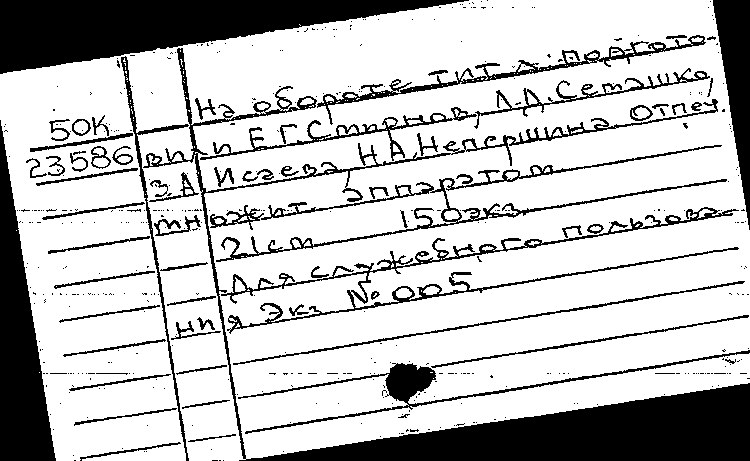 На обороте тит. л.: подгото-
50К
23586 вили Е.Г.Смирнов, Л.Д.Сеташко,
З.А.Исаева, Н.А.Непершина. Отпеч.
множит. аппаратом.
21cm 150экз.
Для служебного пользова-
ния. Экз. №005.